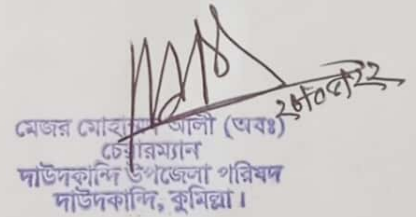 ২৮/০৪/২২
মেজর মোহাম্মদ আলী (অবঃ)
চেয়ারম্যান
দাউদকান্দি উপজেলা পরিষদ
দাউদকান্দি, কুমিল্লা।